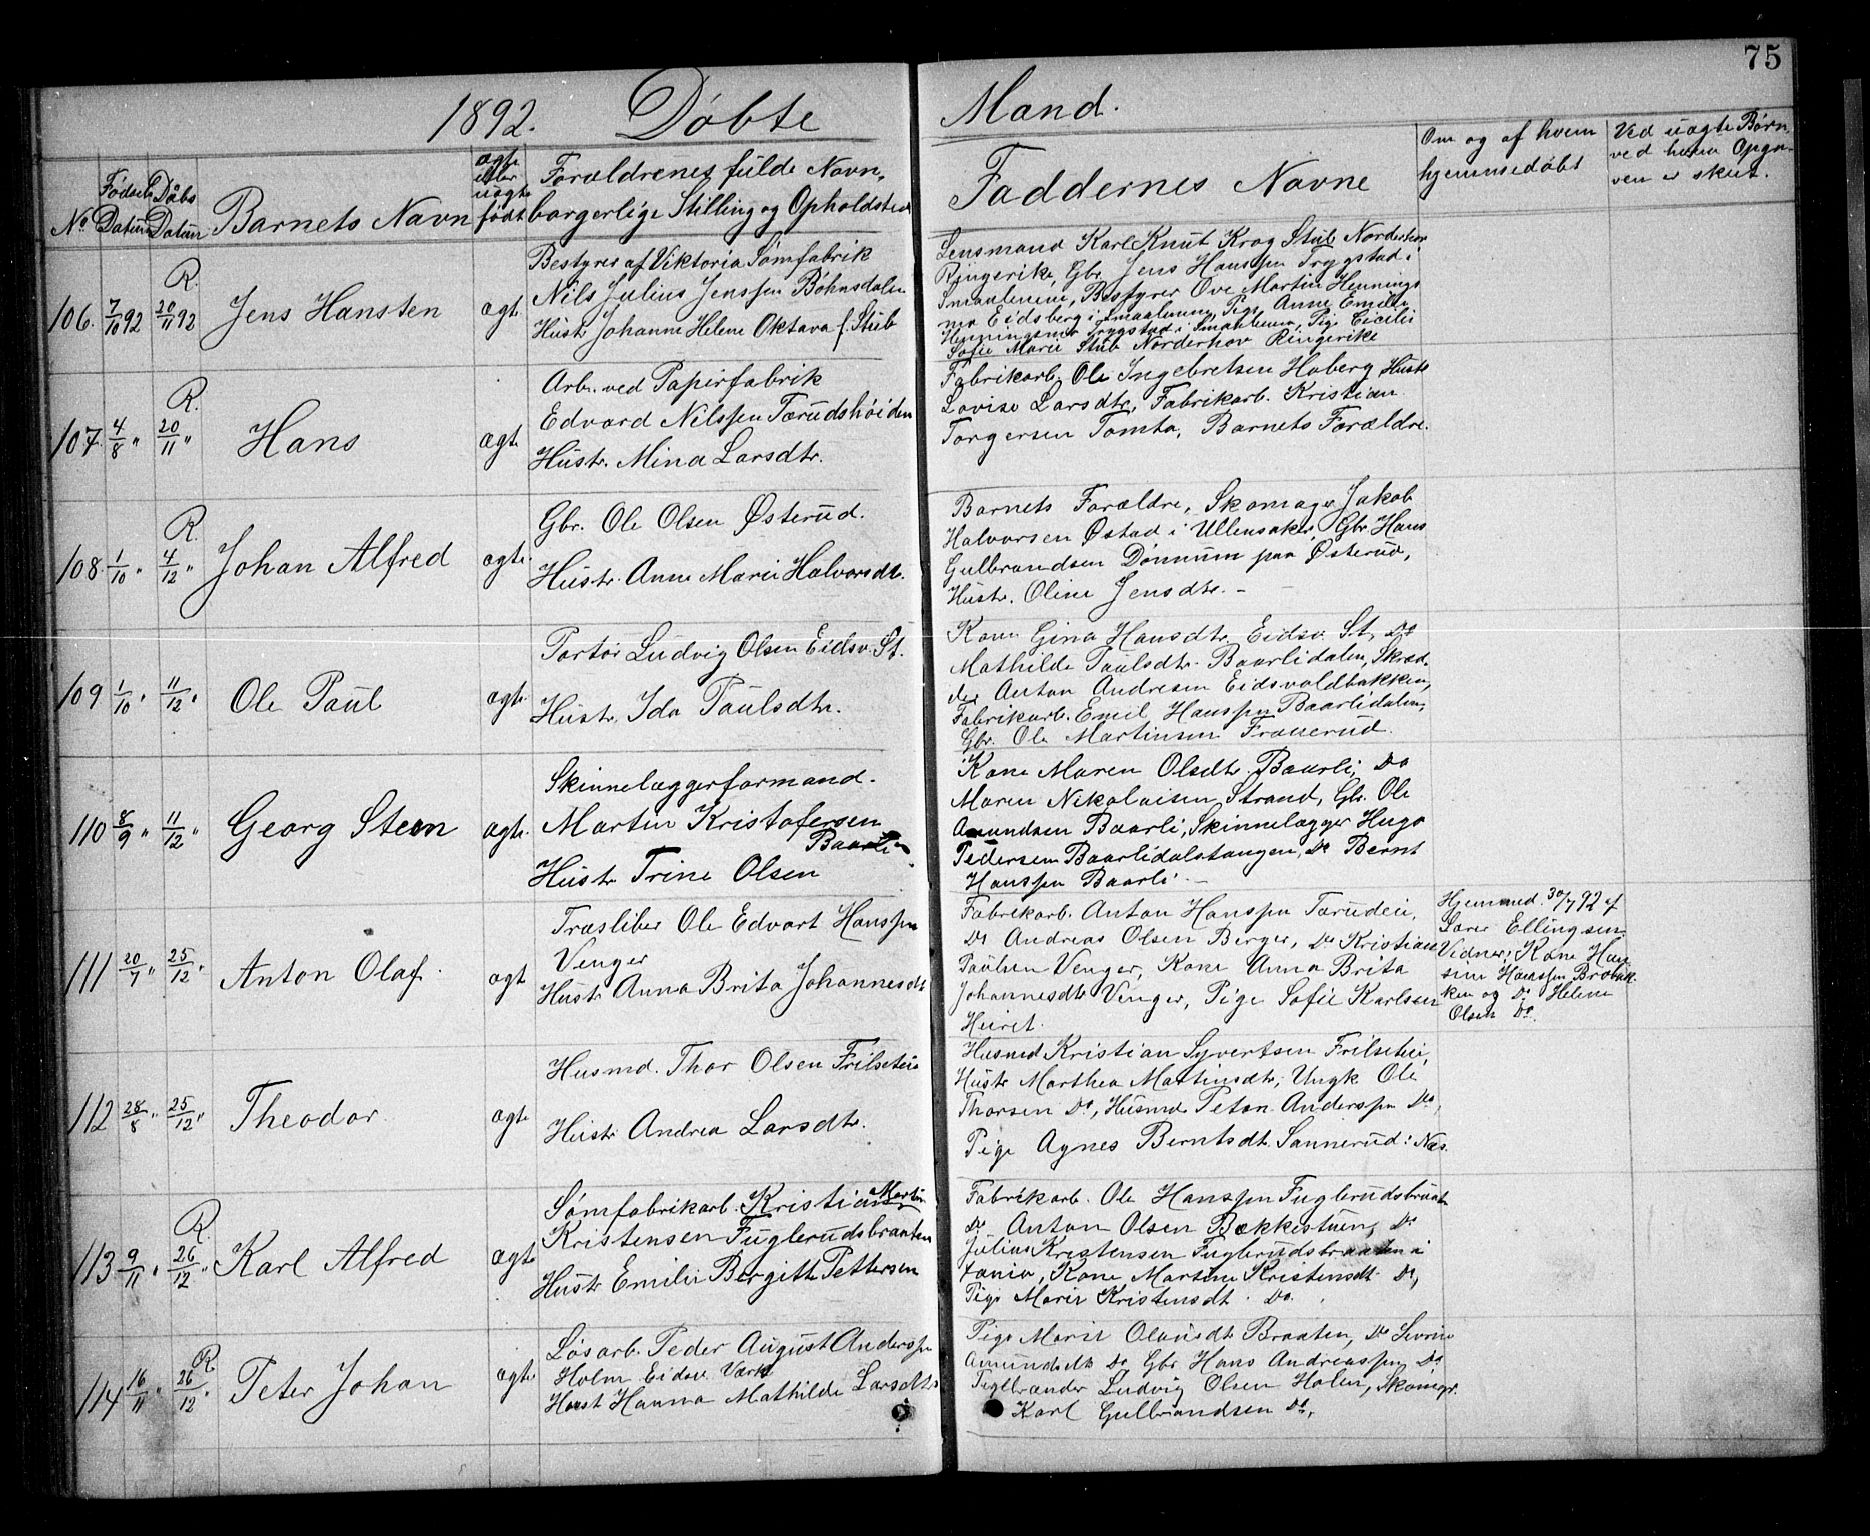 75
1892. Döbte Mand.
No Fødsels Datum Døbs Datum Barnets Navn ægte eller uægte født Forældrenes fulde Navn, borgerlige Stilling og Opholdsted
Faddernes Navne
Om og af hvem hjemmedøbt
Ved uægte Børn ved hvem Opgaven er skeet.
106. 7/10 92 R. 20/11 92 Jens Hansten ægte
Bestyrer af Viktoria Sømfabrik
Nils Julius Jenssen Bøhnsdalen
Hustr. Johanne Helene Oktava f. Stub
Lensmand Karl Knut Krog Stub Norderhov
Ringerike, Gbr. Jens Hanssen Trygstad i
Smaalenene, Bestyrer Ove Martin Hennings
moe Eidsberg i Smaalenene, Pige Anne Emilie
Henningsmoe Trygstad i Smaalenene, Pige Cicilie
Sofie Marie Stub Norderhov Ringerike
107. 4/8 " R. 20/11 " Hans ægte
Arb. ved Papirfabrik
Edvard Nilssen Tærudshøiden
Hustr. Mina Larsdtr.
Fabrikarb. Ole Ingebretsen Hoberg, Hustr
Lovise Larsdtr, Fabrikarb. Kristian
Torgersen Tomta, Barnets Forældre.
108 1/10 " R. 4/12 " Johan Alfred ægte
Gbr. Ole Olsen Østerud.
Hustr. Anne Marie Halvorsdtr.
Barnets Forældre, Skomager Jakob
Halvorsen Østad i Ullensaker, Gbr. Hans
Gulbrandsen Dønnum paa Østerud,
Hustr. Oline Jensdtr. -
109 1/10 " 11/12 " Ole Paul ægte
Portør Ludvig Olsen Eidsv. St.
Hustr. Ida Paulsdtr.
Kone Gina Hansdtr. Eidsv. St, Do
Mathilde Paulsdtr. Baarlidalen, Skræd-
der Anton Andresen Eidsvoldbakken,
Fabrikarb. Emil Hanssen Baarlidalen,
Gbr. Ole Martinsen Frauerud.
110 8/9 " 11/12 " Georg Steen ægte
Skinnelæggerformand.
Martin Kristofersen
Baarli
Hustr Trine Olsen
Kone Maren Olsdtr. Baarli, Do
Maren Nikolaisen Strand, Gbr. Ole
Amundsen Baarli, Skinnelægger Hugo
Pedersen Baarlidalstangen, Do Bernt
Hanssen Baarli. -
111 20/7 " 25/12 " Anton Olaf. ægte
Træsliber Ole Edvart Hanssen
Venger
Hustr Anna Brita Johannesdt
Fabrikarb. Anton Hanssen Tærudeie,
Do Andreas Olsen Berger, Do Kristian
Paulsen Venger, Kone Anna Brita
Johannesdtr Venger, Pige Sofie Karlsen
Heiret.
Hjemmed. 30/7 92 af
Lærer Ellingsen
Vidner: Kone Han
sine Hanssen Brobak
ken og Do Helene
Olsen Do.
112 28/8 " 25/12 " Theodor. ægte
Husmd. Thor Olsen Frilseteie
Hustr. Andrea Larsdtr.
Husmd Kristian Syvertsen Frilseteie,
Hustr Marthea Martinsdtr, Ungk Ole
Thorsen Do, Husmd. Peton Anderssen Do,
Pige Agnes Berntsdt Sannerud i Næs.
113 9/11 " R. 26/12 " Karl Alfred ægte
Sømfabrikarb. Kristian Martin
Kristensen Fuglerudsbraaten
Hustr Emilie Bergitte Pettersen
Fabrikarb. Ole Hanssen Fuglerudsbraat
Do Anton Olsen Bækkestuen, Do
Julius Kristensen Fuglerudsbraaten i
Kone Martine Kristensdt. Do,
Pige Marie Kristensdt. Do.
114 16/11 R. 26/12 " Peter Johan ægte
Løsarb. Peder August Anderssen
Holm Eidsv. Værk
Hust Hanna Mathilde Larsdtr
Pige Marie Olausdt Braaten, Do Severine
Amundsdtr Do Gbr. Hans Andreassen Do
Teglbrænder Ludvig Olsen Holen, Skomgr.
Karl Gulbrandsen Do,